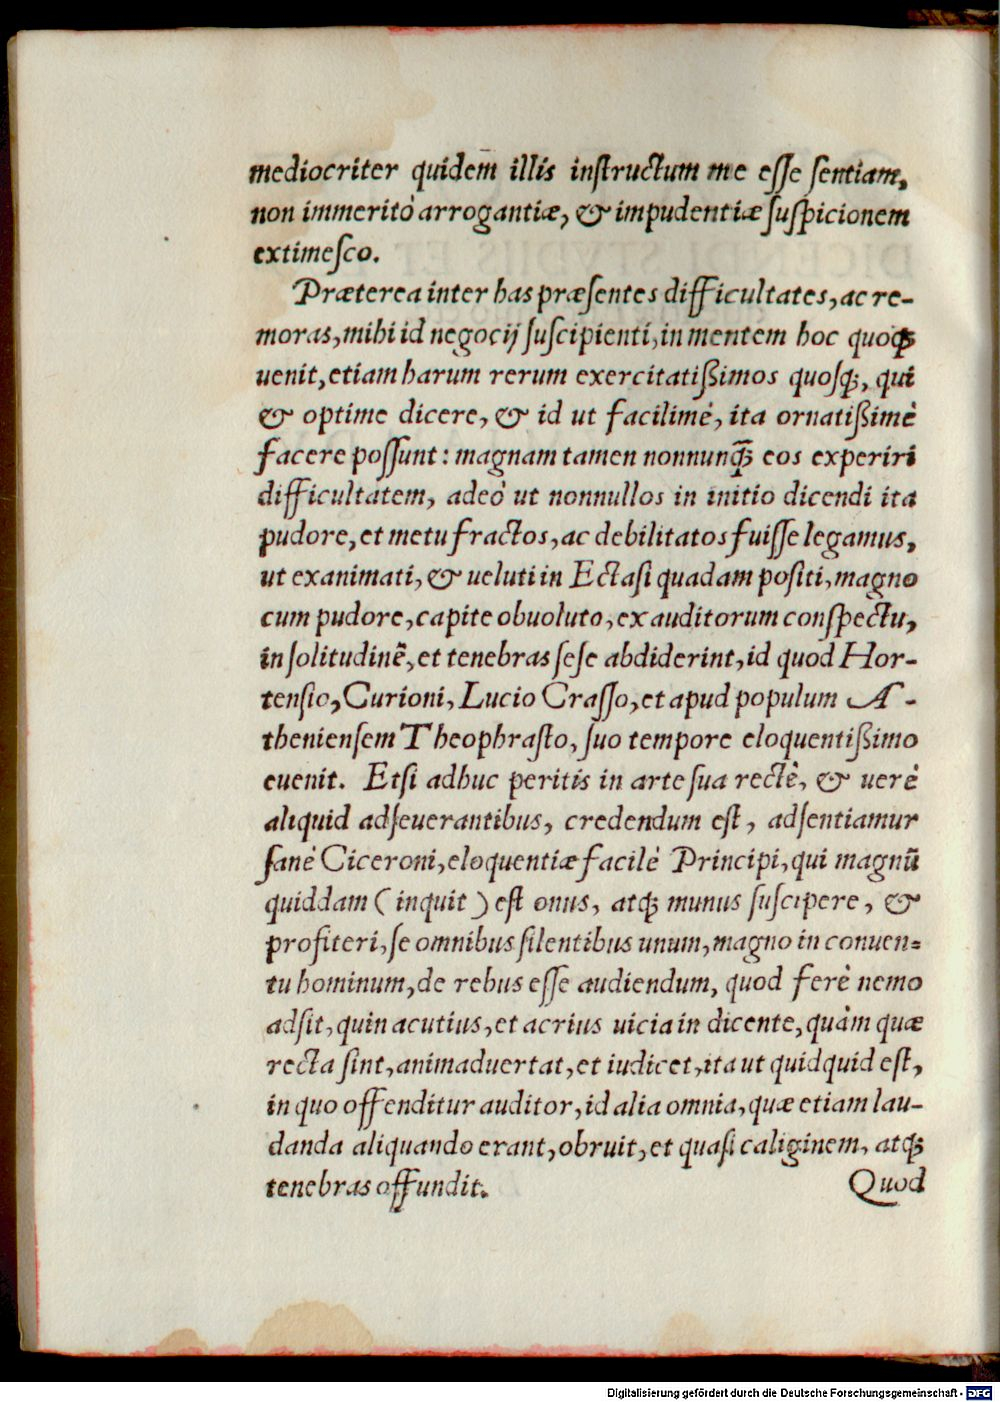 mediocriter quidem̄ illis instructum me esse sentiam,
non immeritò arrogantiæ, & impudentiæ suspicionem
extimesco.
Præterea inter has præsentes difficultates, ac re-
moras, mihi id negocij suscipienti, in mentem hoc quoqꝫ
uenit, etiam harum rerum exercitatißimos quosqꝫ, qui
& optime dicere, & id ut facilimè, ita ornatißimè
facere possunt: magnam tamen nonnunq̃ꝫ eos experiri
difficultatem, adeò ut nonnullos in initio dicendi ita
pudore, et metu fractos, ac debilitatos fuisse legamus,
ut exanimati, & ueluti in Ectasi quadam positi, magno
cum pudore, capite obuoluto, ex auditorum conspectu,
in solitudinẽ, et tenebras sese abdiderint, id quod Hor-
tensio, Curioni, Lucio Crasso, et apud populum A-
theniensem Theophrasto, suo tempore eloquentißimo
euenit. Etsi adhuc peritis in arte sua rectè, & uerè
aliquid adseuerantibus, credendum est, adsentiamur
sanè Ciceroni, eloquentiæ facilè Principi, qui magnũ
quiddam (inquit) est onus, atqꝫ munus suscipere, &
profiteri, se omnibus silentibus unum, magno in conuen-
tu hominum, de rebus esse audiendum, quod ferè nemo
adsit, quin acutius, et acrius uicia in dicente, quàm quæ
recta sint, animaduertat, et iudicet, ita ut quidquid est,
in quo offenditur auditor, id alia omnia, quæ etiam lau-
danda aliquando erant, obruit, et quasi caliginem, atqꝫ
tenebras offundit. Quod
Digitalisierung gefördert durch die Deutsche Forschungsgemeinschaft - DFG